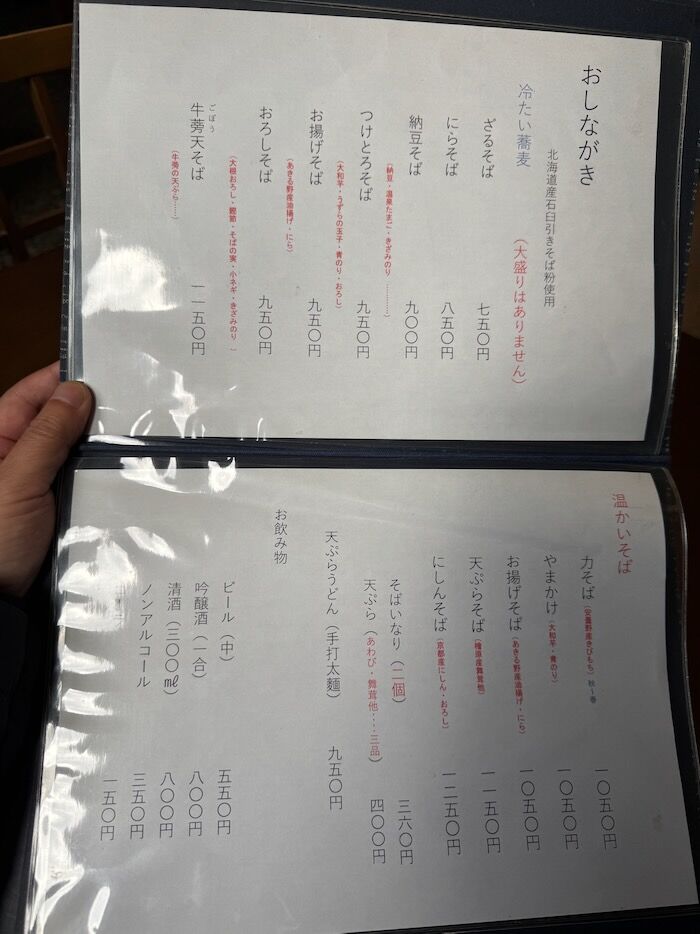 おしながき
冷たい蕎麦
北海道産石臼引きそば粉使用
(大盛りはありません)
ざるそば 七五〇円
にらそば 八五〇円
納豆そば 九〇〇円
(納豆・温泉たまご・きざみのり…………)
つけとろそば 九五〇円
(大和芋・うずらの玉子・青のり・おろし)
お揚げそば 九五〇円
(あきる野産油揚げ・にら)
おろしそば 九五〇円
(大根おろし・鰹節・そばの実・小ネギ・きざみのり 。)
ごぼう
牛蒡天そば 一一五〇円
(牛蒡の天ぷら……)
温かいそば
力そば(安曇野産きびもち)秋〜春 一〇五〇円
やまかけ(大和芋・青のり) 一〇五〇円
お揚げそば(あきる野産油揚げ・にら) 一〇五〇円
天ぷらそば(檜原産舞茸他) 一一五〇円
にしんそば(京都産にしん・おろし) 一二五〇円
そばいなり(二個) 三六〇円
天ぷら(あわび・舞茸他‥‥三品) 四〇〇円
天ぷらうどん(手打太麺) 九五〇円
お飲み物
ビール(中) 五五〇円
吟醸酒(一合) 八〇〇円
清酒(三〇〇㎖) 八〇〇円
ノンアルコール 三五〇円
一五〇円